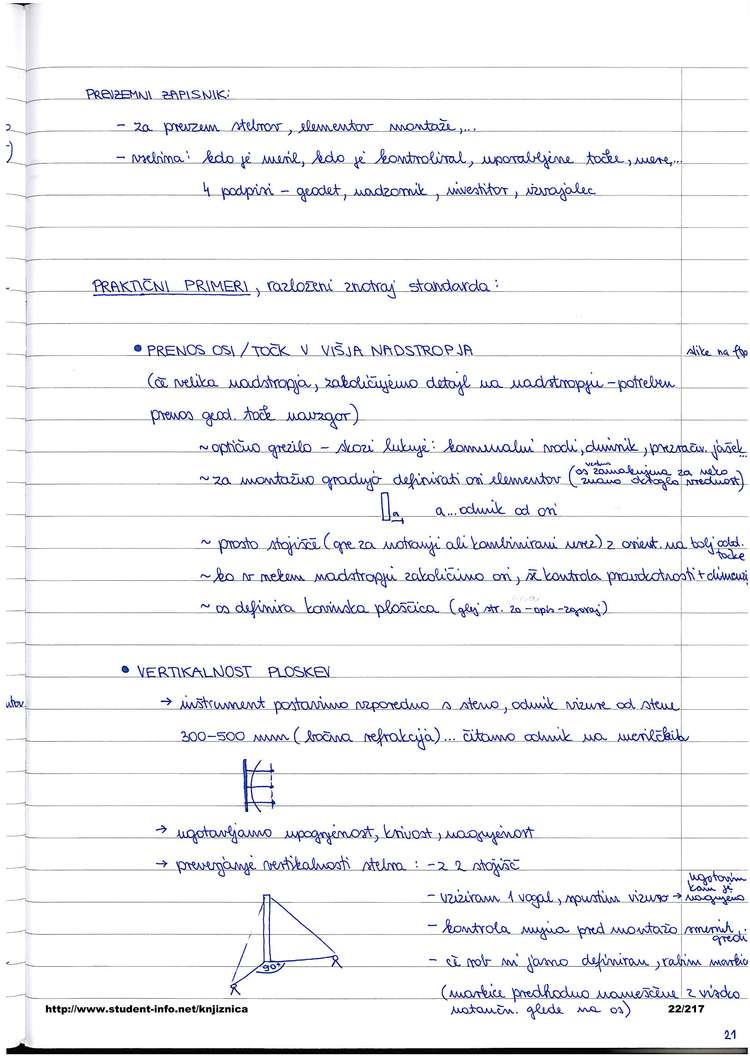 PREVZEMNI ZAPISNIK:
- za prevzem stebrov, elementov montaže,...
- vsebina: kdo je meril, kdo je kontroliral, uporabljene točke, mere,...
4 podpisi - geodet, nadzornik, investitor, izvajalec
PRAKTIČNI PRIMERI, razloženi znotraj standarda:
• PRENOS OSI/TOČK V VIŠJA NADSTROPJA
slike na ftp
(če velika nadstropja, zakoličujemo detajl na nadstropju - potreben
prenos geod. točk navzgor)
~ optično grezilo - skozi luknje: komunalni vodi, dimnik, prezračev. jašek
~ za montažno gradnjo definirati osi elementov (os zamaknjena za neko
znano vrednost)
a a... odmik od osi
~ prosto stojišče (gre za notranji ali kombinirani urez) z orient. na bolj odd.
točke
~ ko v nekem nadstropju zakoličimo osi, še kontrola pravokotnosti + dimenzij
~ os definira kovinska ploščica (glej str. 20 - opis - zgoraj)
• VERTIKALNOST PLOSKEV
→ inštrument postavimo vzporedno s steno, odmik vizure od stene
300-500 mm (bočna refrakcija)... čitamo odmik na merilčkih
→ ugotavljamo upognjenost, krivost, nagnjenost
→ preverjanje vertikalnosti stebra: - z 2 stojišč
ugotovim
kam je
- viziram 1 vogal, spustim vizuro → nagnjeno
- kontrola nujna pred montažo
gredi
90°
- če rob ni jasno definiran, rabim markice
(markice predhodno nameščene z visoko
natančn. glede na os)
http://www.student-info.net/knjiznica
22/217
21